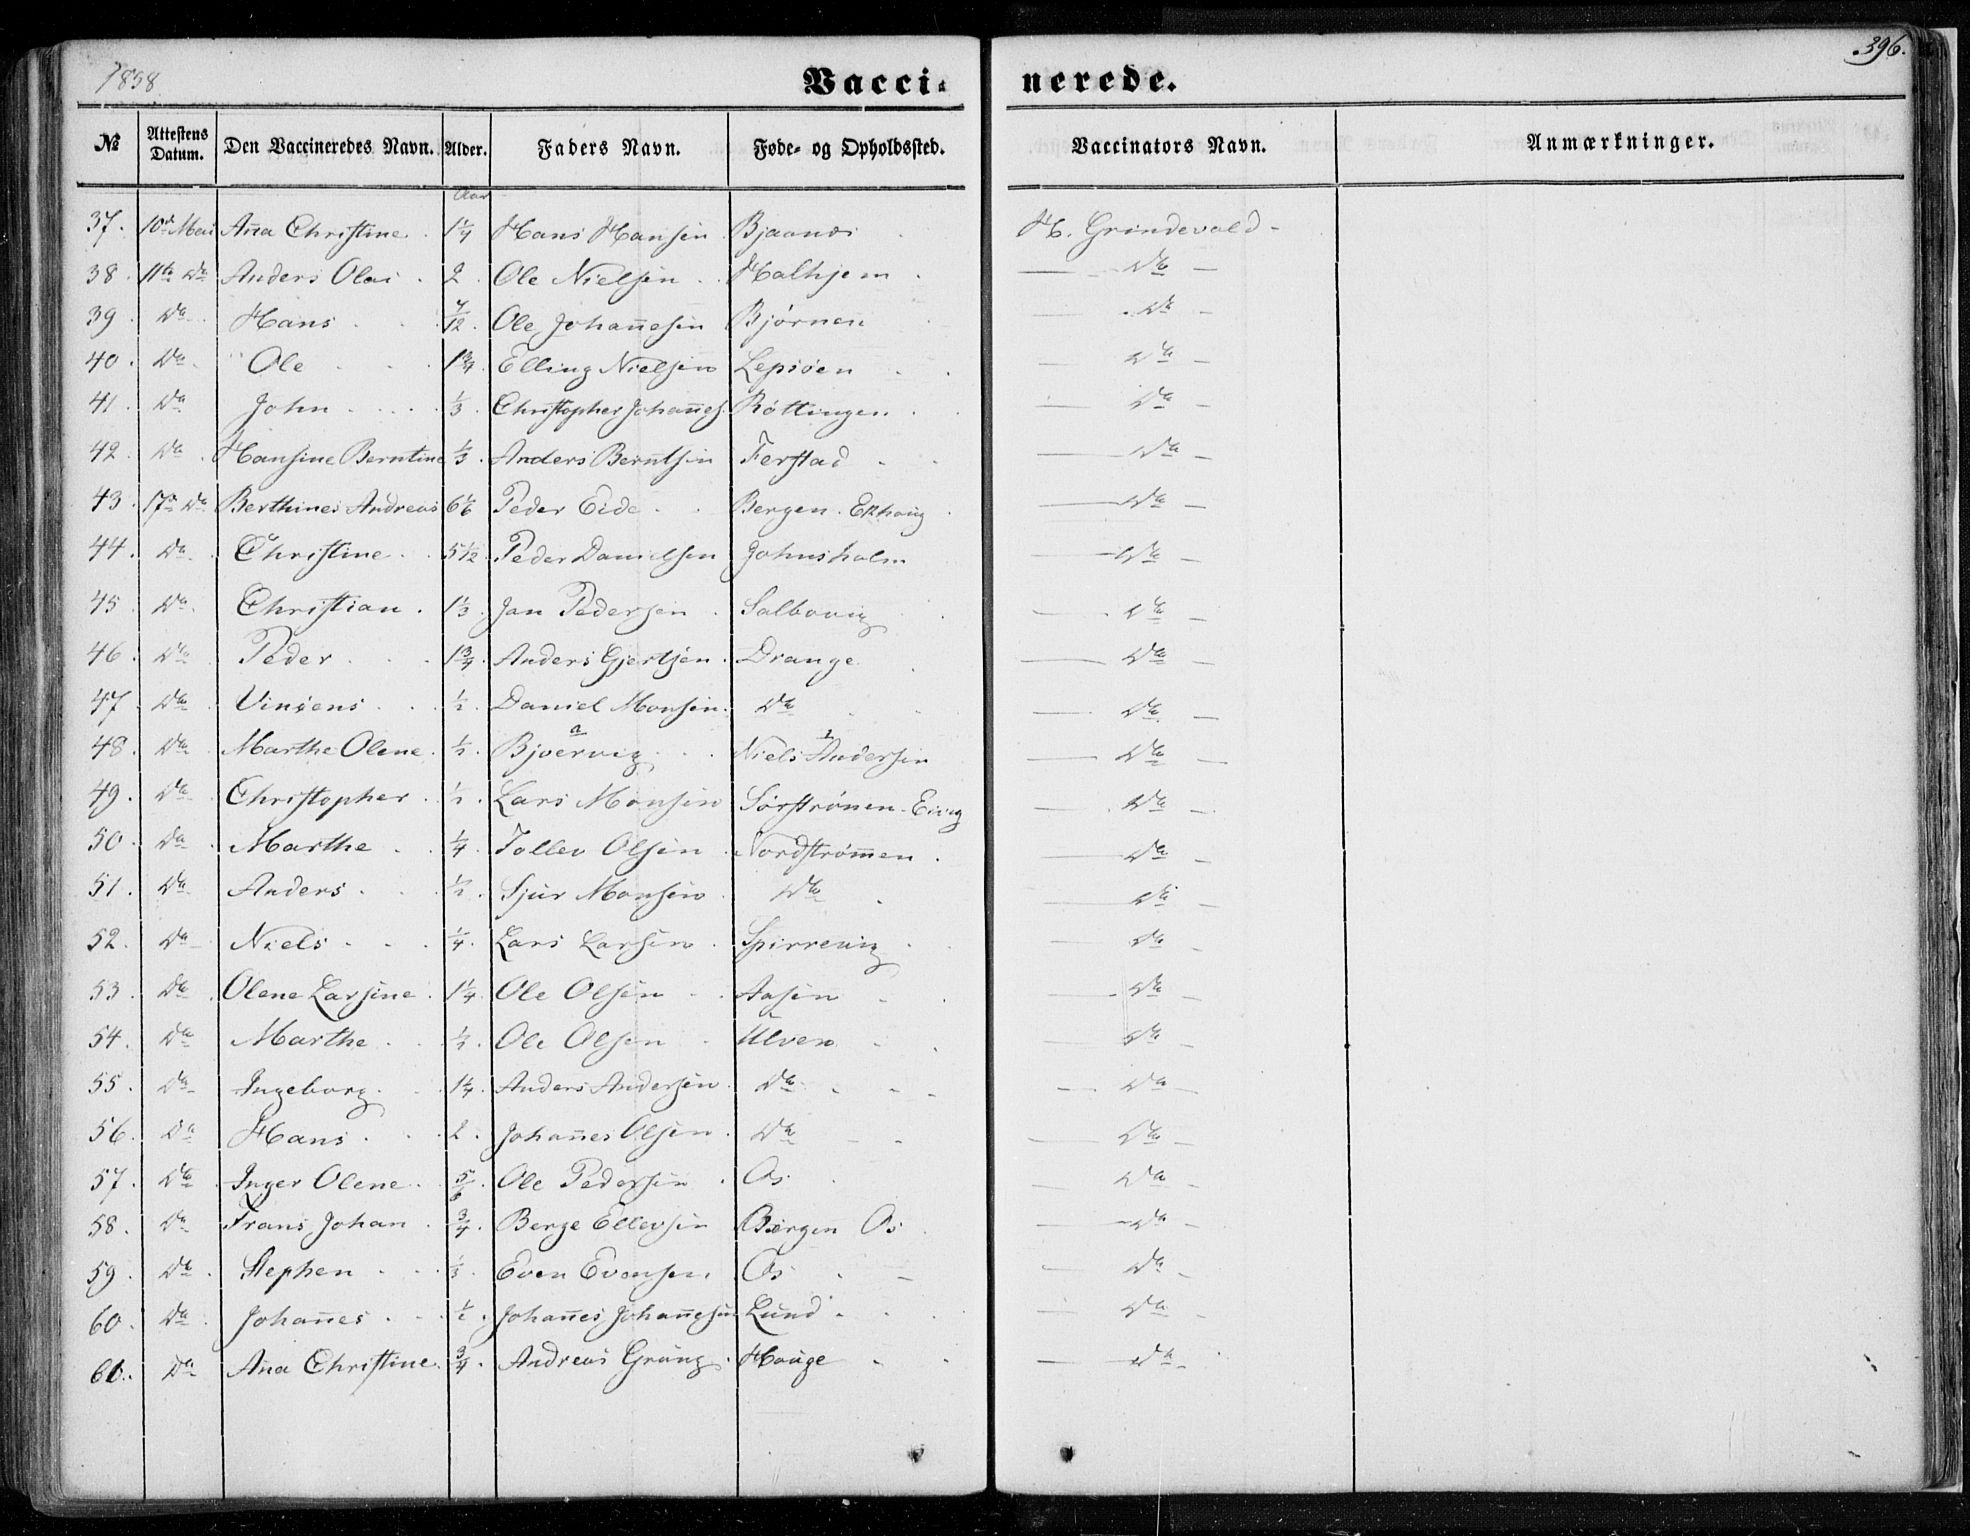 1858
Vacci- nerede.
396.
№ Attestens Datum. Den Vaccineredes Navn. Alder. Faders Navn. Føde- og Opholdssted. Vaccinators Navn. Anmærkninger.
Aar
37. 10de Mai Ana Christine. 1 1/4 Hans Hansen Bjaanæs H. Grindevold -
38. 11te Do Anders Olai. 2. Ole Nielsen. Halhjem. Do
39. Do Hans 7/12. Ole Johanesen Bjørnen Do
40. Do Ole 1 3/4. Elling Nielsen Lepsøen Do
41. Do John 1/3. Christopher Johanes. Røttingen. Do
42. Do Hansine Berntine 1/3. Anders Berntsen Ferstad Do
43. 17de Do Berthines Andreas 6 1/6 Peder Eide Bergen. Ekhoug Do
44. Do Christine 5 1/12 Peder Danielsen Johnsholm Do
45. Do Christian. 1 1/3. Jan Pedersen. Salbovig Do
46. Do Peder 1 3/4. Anders Gjertsen. Drange Do
47. Do Vinsens 1/2. Daniel Monsen. Do Do
48. Do Marthe Olene. 1/2. Bjoervig Niels Andersen Do
49. Do Christopher. 1/2. Lars Monsen Sørstrønen - Eivig Do
50. Do Marthe 1/4. Tollev Olsen Nordstrømen. Do
51. Do Anders 1/2. Sjur Monsen Do Do
52. Do Niels 1/4. Lars Larsen. Spirrevig Do
53. Do Olene Larsine. 1 1/4. Ole Olsen Aasen Do
54. Do Marthe 1/2. Ole Olsen Ulven Do
55. Do Ingeborg. 1 1/4. Anders Andersen. Do Do
56. Do Hans. 2. Johanes Olsen. Do Do
57. Do Inger Olene. 5/6 Ole Pedersen Os Do
58. Do Frans Johan. 3/4. Berge Ellevsen Bergen Os Do
59. Do Stephen 1/3. Even Evensen. Os Do
60. Do Johanes 1/2. Johanes Johanesen Lund Do
61. Do Ana Christine. 3/4. Andreas Grung. Houge Do